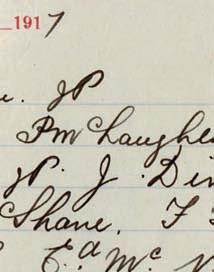 1917
JP
P McLaughl
JP. J. Din
Shane. F
Ed. Mc